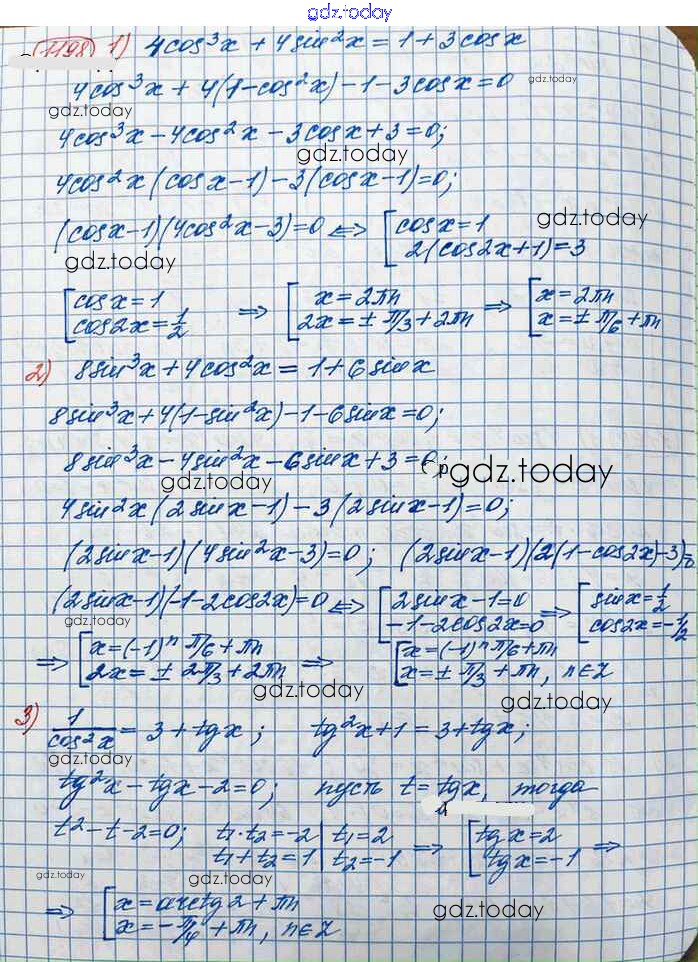 gdz.today
1198 1) 4cos³x + 4sin²x = 1 + 3cosx
4cos³x + 4(1-cos²x) - 1 - 3cosx = 0 gdz.today
gdz.today
4cos³x - 4cos²x - 3cosx + 3 = 0;
gdz.today
4cos²x(cosx-1) - 3(cosx-1) = 0;
(cosx-1)(4cos²x-3) = 0 <=> [cosx = 1 gdz.today
2(cos2x+1) = 3
gdz.today
[cosx = 1 => [x = 2πn => [x = 2πn
cos2x = 1/2 2x = ± π/3 + 2πn x = ± π/6 + πn
2) 8sin³x + 4cos²x = 1 + 6sinx
8sin³x + 4(1-sin²x) - 1 - 6sinx = 0;
8sin³x - 4sin²x - 6sinx + 3 = 0;
gdz.today gdz.today
4sin²x(2sinx-1) - 3(2sinx-1) = 0;
(2sinx-1)(4sin²x-3) = 0; (2sinx-1)(2(1-cos2x)-3)=0
(2sinx-1)(-1-2cos2x) = 0 <=> [2sinx-1=0 => [sinx = 1/2
gdz.today -1-2cos2x=0 cos2x = -1/2
=> [x = (-1)ⁿ π/6 + πn => [x = (-1)ⁿ π/6 + πn
2x = ± 2π/3 + 2πn x = ± π/3 + πn, n∈Z
gdz.today gdz.today
3) 1/cos²x = 3 + tgx; tg²x + 1 = 3 + tgx;
gdz.today
tg²x - tgx - 2 = 0; пусть t = tgx, тогда
t² - t - 2 = 0; t₁·t₂ = -2 | t₁ = 2 => [tgx = 2 =>
t₁ + t₂ = 1 | t₂ = -1 tgx = -1
gdz.today gdz.today
=> [x = arctg2 + πn
x = -π/4 + πn, n∈Z gdz.today